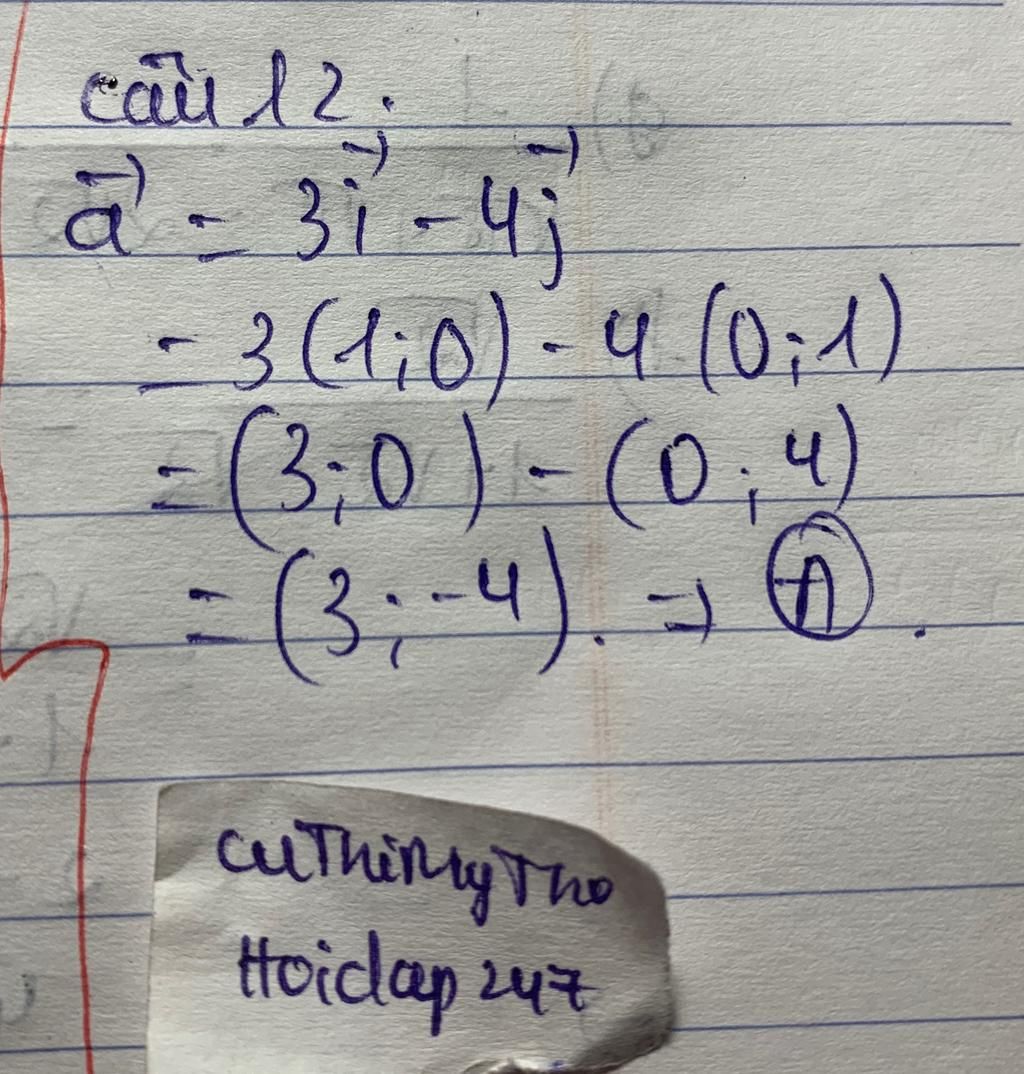 Câu 12:
a⃗ = 3i⃗ - 4j⃗
= 3(1;0) - 4(0;1)
= (3;0) - (0;4)
= (3;-4). ⇒ Ⓐ.
CuThiMyTho
Hoidap247